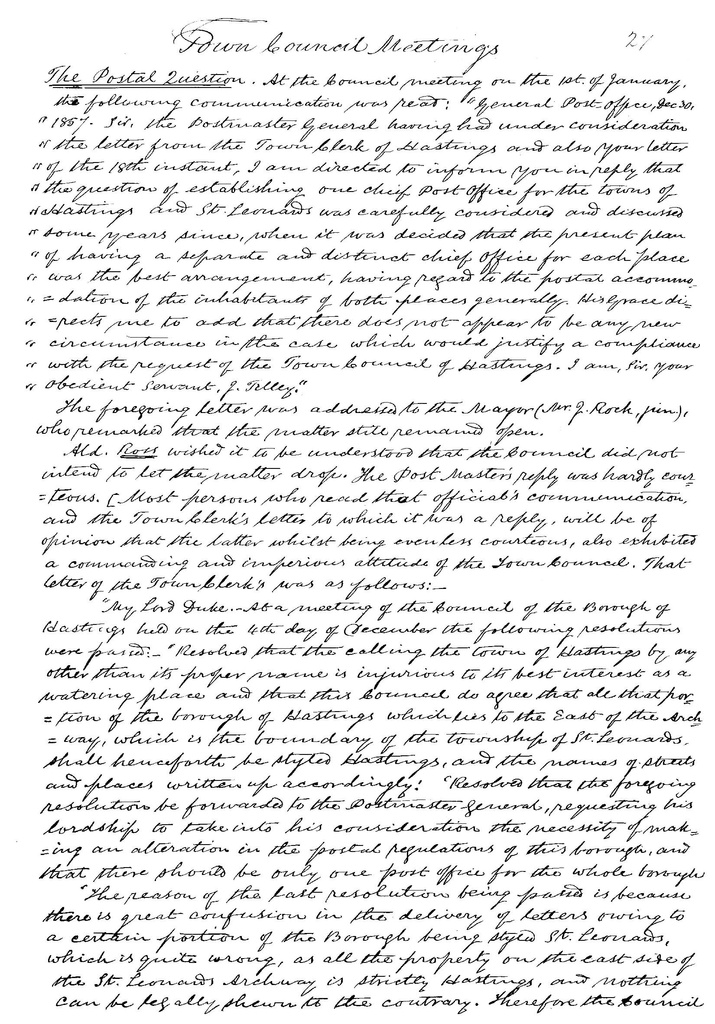 Town Council Meetings 27
The Postal Question. At the Council meeting on the 1st. of January,
the following communication was read: "General Post-office, Dec 30,
" 1857. Sir, the Postmaster General having had under consideration
" the letter from the Town Clerk of Hastings and also your letter
" of the 18th instant, I am directed to inform you in reply that
" the question of establishing one chief Post Office for the towns of
" Hastings and St. Leonards was carefully considered and discussed
" some years since, when it was decided that the present plan
" of having a separate and distinct chief office for each place
" was the best arrangement, having regard to the postal accommo-
" =dation of the inhabitants of both places generally. His Grace di-
" =rects me to add that there does not appear to be any new
" circumstance in the case which would justify a compliance
" with the request of the Town Council of Hastings. I am, Sir, your
" Obedient Servant, J. Tilley."
The foregoing letter was addressed to the Mayor (Mr. J. Rock, jun),
who remarked that the matter still remained open.
Ald. Ross wished it to be understood that the Council did not
intend to let the matter drop. The Post Master's reply was hardly cour-
=teous. (Most persons who read that official's communication,
and the Town Clerk's letter to which it was a reply, will be of
opinion that the latter whilst being even less courteous, also exhibited
a commanding and imperious attitude of the Town Council. That
letter of the Town Clerk's was as follows:—
"My Lord Duke.—At a meeting of the Council of the Borough of
Hastings held on the 4th day of December the following resolutions
were passed:—"Resolved that the calling the town of Hastings by any
other than its proper name is injurious to its best interest as a
watering place and that this Council do agree that all that por-
=tion of the borough of Hastings which lies to the East of the Arch
=way, which is the boundary of the township of St. Leonards,
shall henceforth be styled Hastings, and the names of streets
and places written up accordingly." "Resolved that the foregoing
resolution be forwarded to the Postmaster-General, requesting his
lordship to take into his consideration the necessity of mak-
=ing an alteration in the postal regulations of this borough, and
that there should be only one post office for the whole borough
"The reason of the last resolution being passed is because
there is great confusion in the delivery of letters owing to
a certain portion of the Borough being styled St. Leonards,
which is quite wrong, as all the property on the east side of
the St. Leonards Archway is strictly Hastings, and nothing
can be legally shewn to the contrary. Therefore the Council